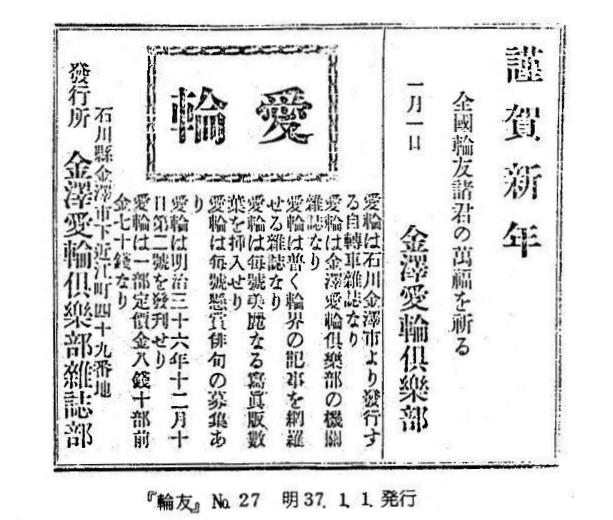 謹賀新年
全國輪友諸君の萬福を祈る
一月一日
金澤愛輪倶樂部
愛輪
愛輪は石川金澤市より發行す
る自轉車雜誌なり
愛輪は金澤愛輪倶樂部の機關
雜誌なり
愛輪は普く輪界の記事を網羅
せる雜誌なり
愛輪は每號美麗なる寫眞版數
葉を挿入せり
愛輪は每號懸賞俳句の募集あ
り
愛輪は明治三十六年十二月十
日第二號を發刊せり
愛輪は一部定價金八錢十部前
金七十錢なり
石川縣金澤市下近江町四十九番地
發行所 金澤愛輪倶樂部雜誌部
『輪友』 No. 27 明37. 1. 1. 発行